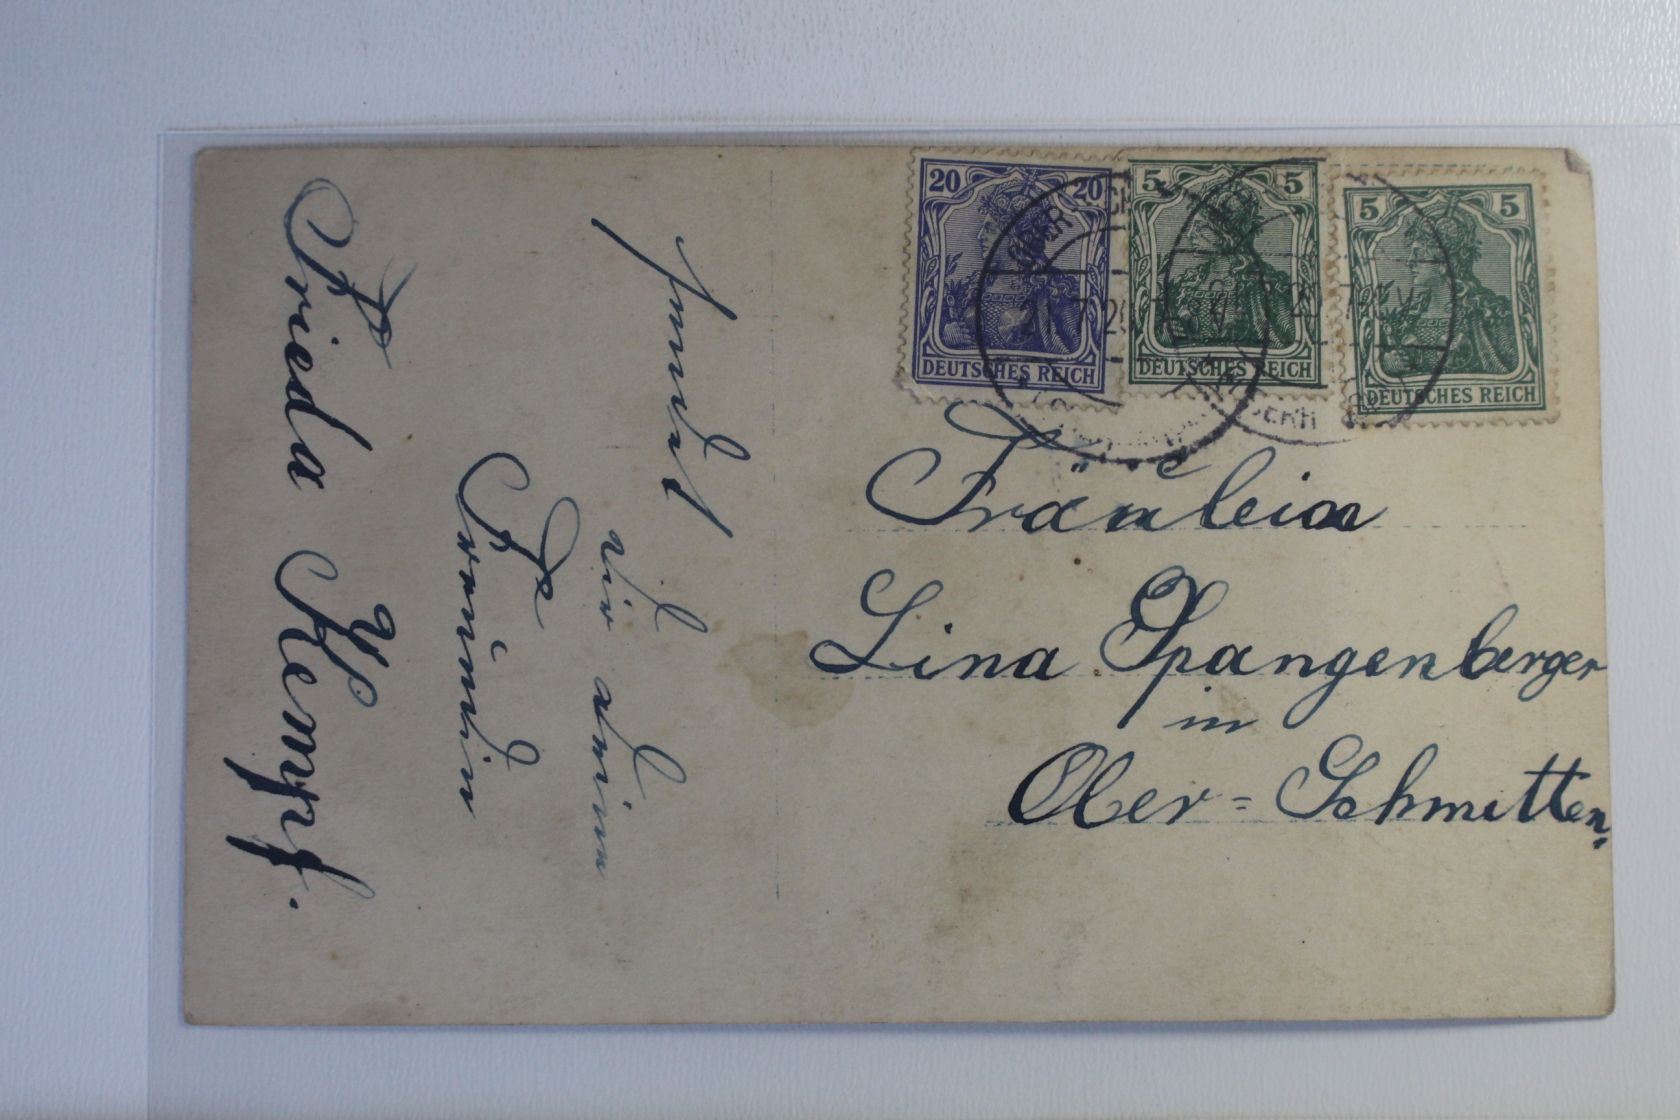 20 20
DEUTSCHES REICH
5 5
DEUTSCHES REICH
5 5
DEUTSCHES REICH
Fräulein
Lina Spangenberger
in
Ober-Schmitten.
sendet
dir deine
Freundin
Frieda Kempf.